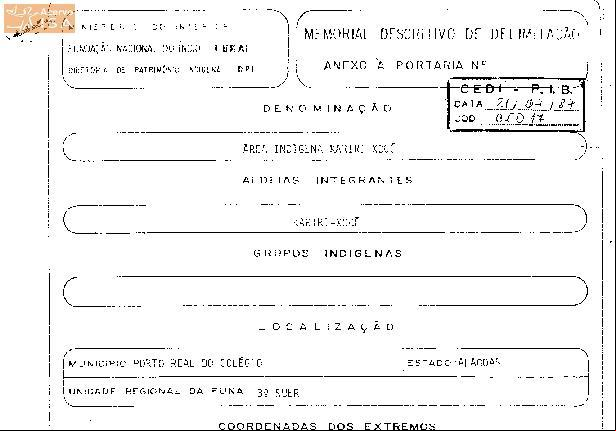 Acervo
ISA
MINISTÉRIO DO INTERIOR
FUNDAÇÃO NACIONAL DO ÍNDIO (FUNAI)
DIRETORIA DE PATRIMÔNIO INDÍGENA DPI
MEMORIAL DESCRITIVO DE DELIMITAÇÃO
ANEXO À PORTARIA Nº
CEDI - P.I.B.
DATA 21/07/87
COD
DENOMINAÇÃO
ÁREA INDÍGENA KARIRI-XOCÓ
ALDEIAS INTEGRANTES
KARIRI-XOCÓ
GRUPOS INDÍGENAS
LOCALIZAÇÃO
MUNICÍPIO PORTO REAL DO COLÉGIO ESTADO ALAGOAS
UNIDADE REGIONAL DA FUNAI 3ª SUER
COORDENADAS DOS EXTREMOS